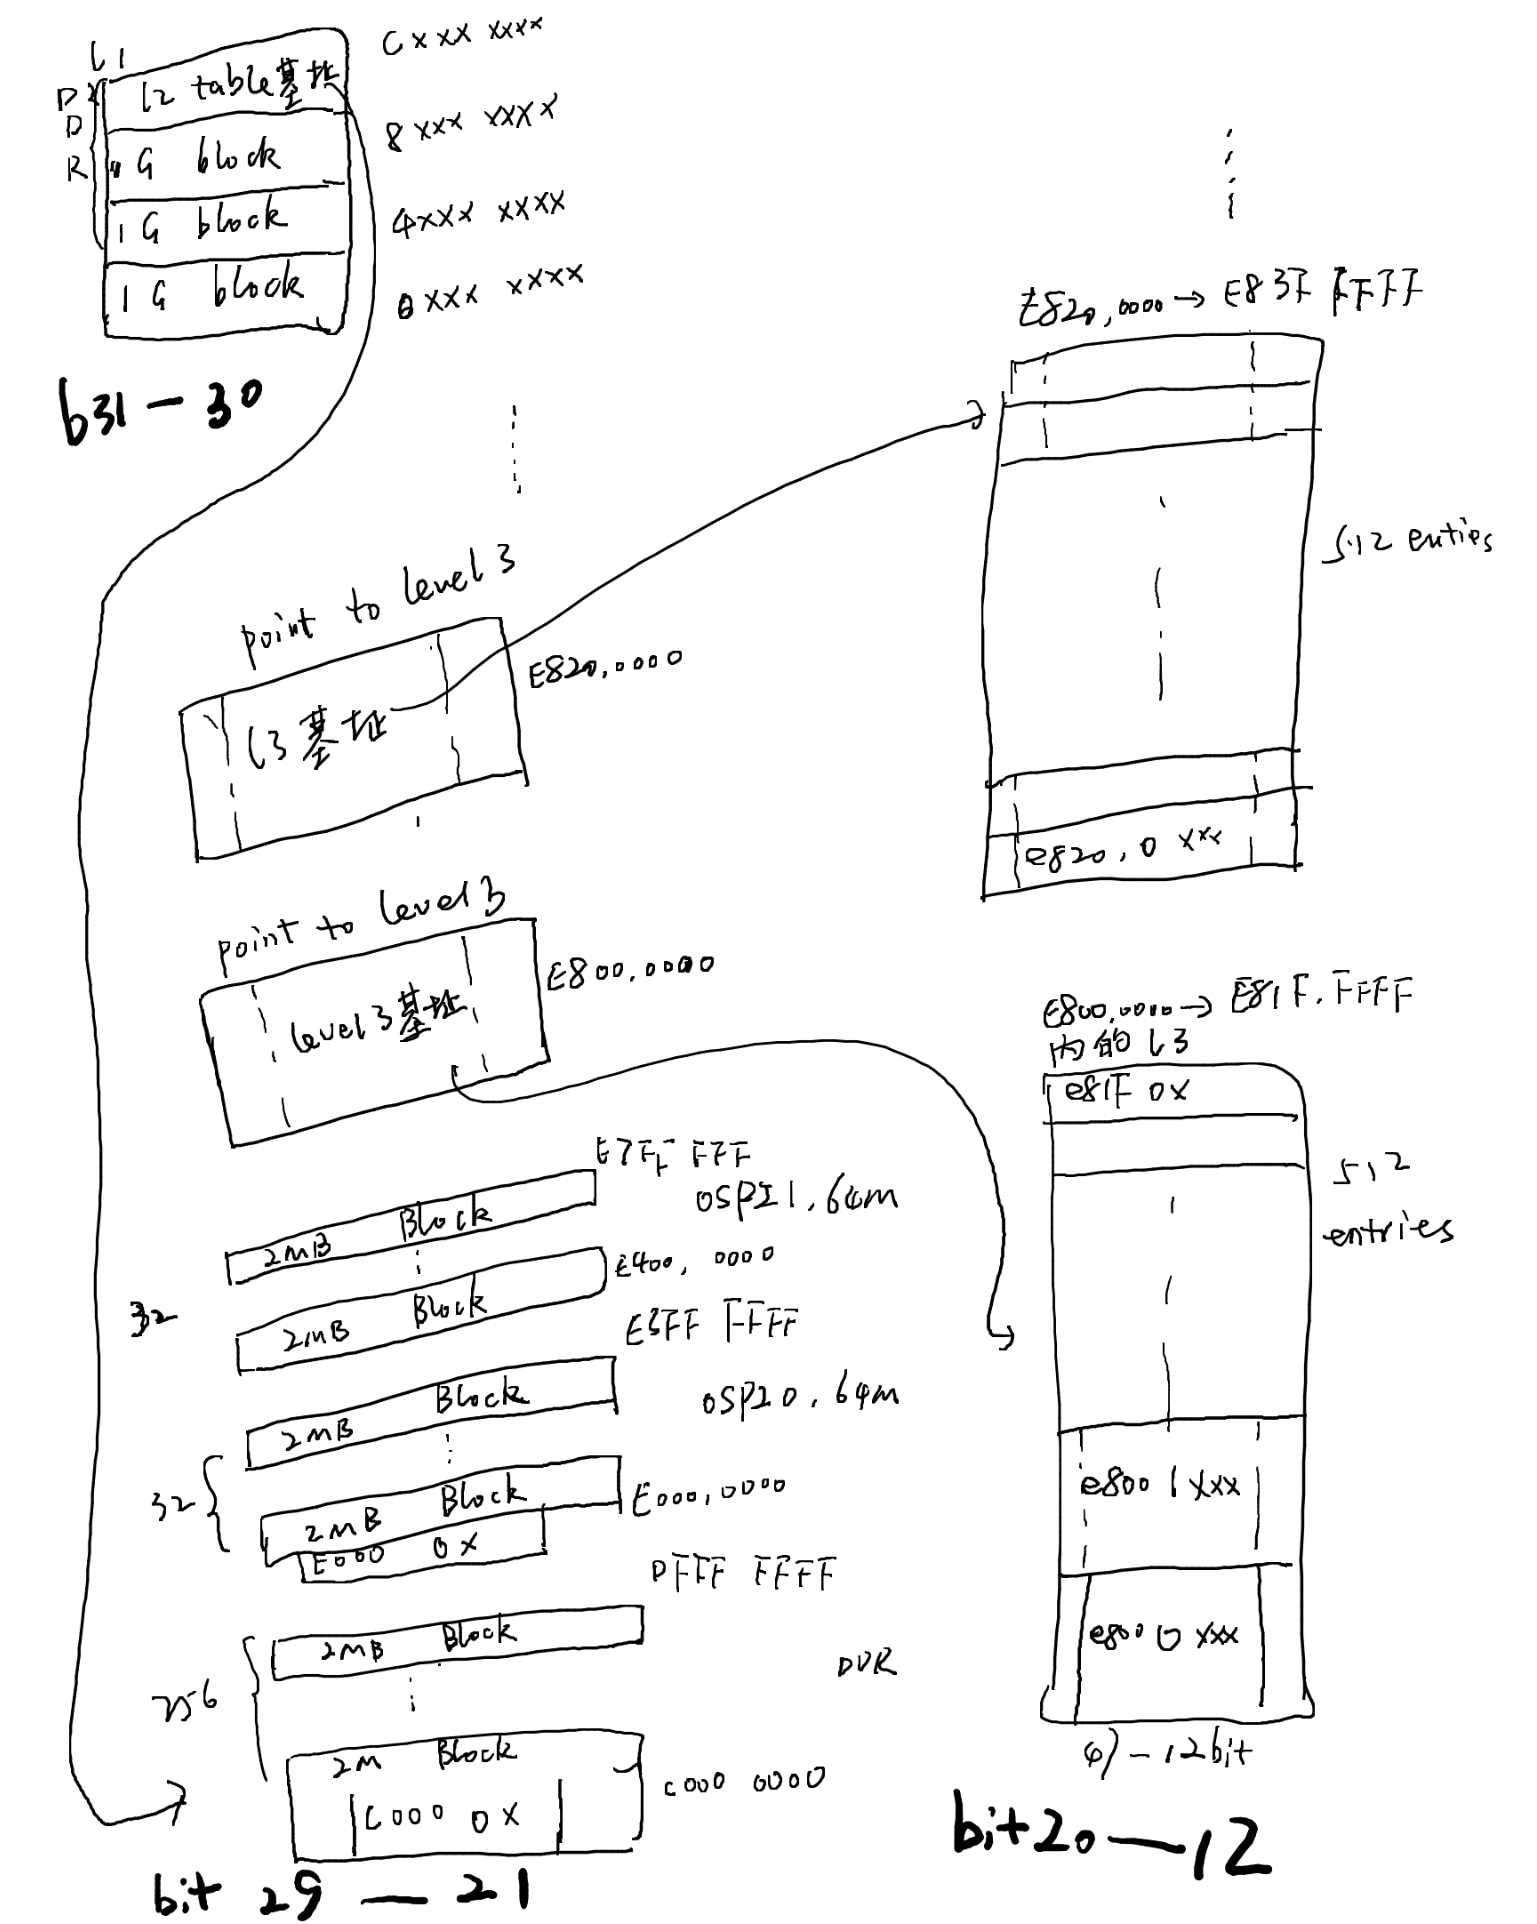 L1
C xxx xxxx
L2 table基址
DDR
8 xxx xxxx
1G block
4xxx xxxx
1G block
0xxx xxxx
1G block
b31-30
E820,0000→E83F FFFF
512 enties
point to level 3
E820,0000
L3基址
e820,0xxx
point to level3
E800,0000
level3基址
E800,0000→E81F,FFFF
内的L3
e81F 0x
512
entries
E7FF FFF
OSPI1,64m
2MB Block
E400,0000
32
2MB Block
E3FF FFFF
OSPI0,64m
2MB Block
32
2MB Block
E000,0000
E000 0x
DFFF FFFF
e800 1xxx
2MB Block
DDR
256
e800 0xxx
2M Block
C000 0000
C000 0x
47-12bit
bit20-12
bit 29-21